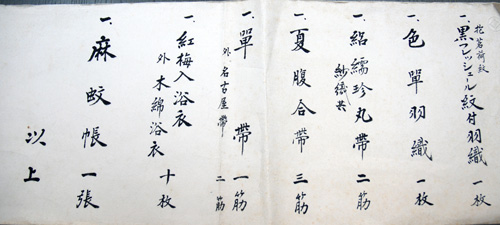 抱茗荷紋
一、黒フレッシュール紋付羽織 一枚
一、色單羽織 一枚
一、絽繻珍丸帶 二筋
紗織共
一、夏腹合帶 三筋
一、單帶 一筋
外名古屋帶 二筋
一、紅梅入浴衣
外木綿浴衣 十枚
一、麻蚊帳 一張
以上